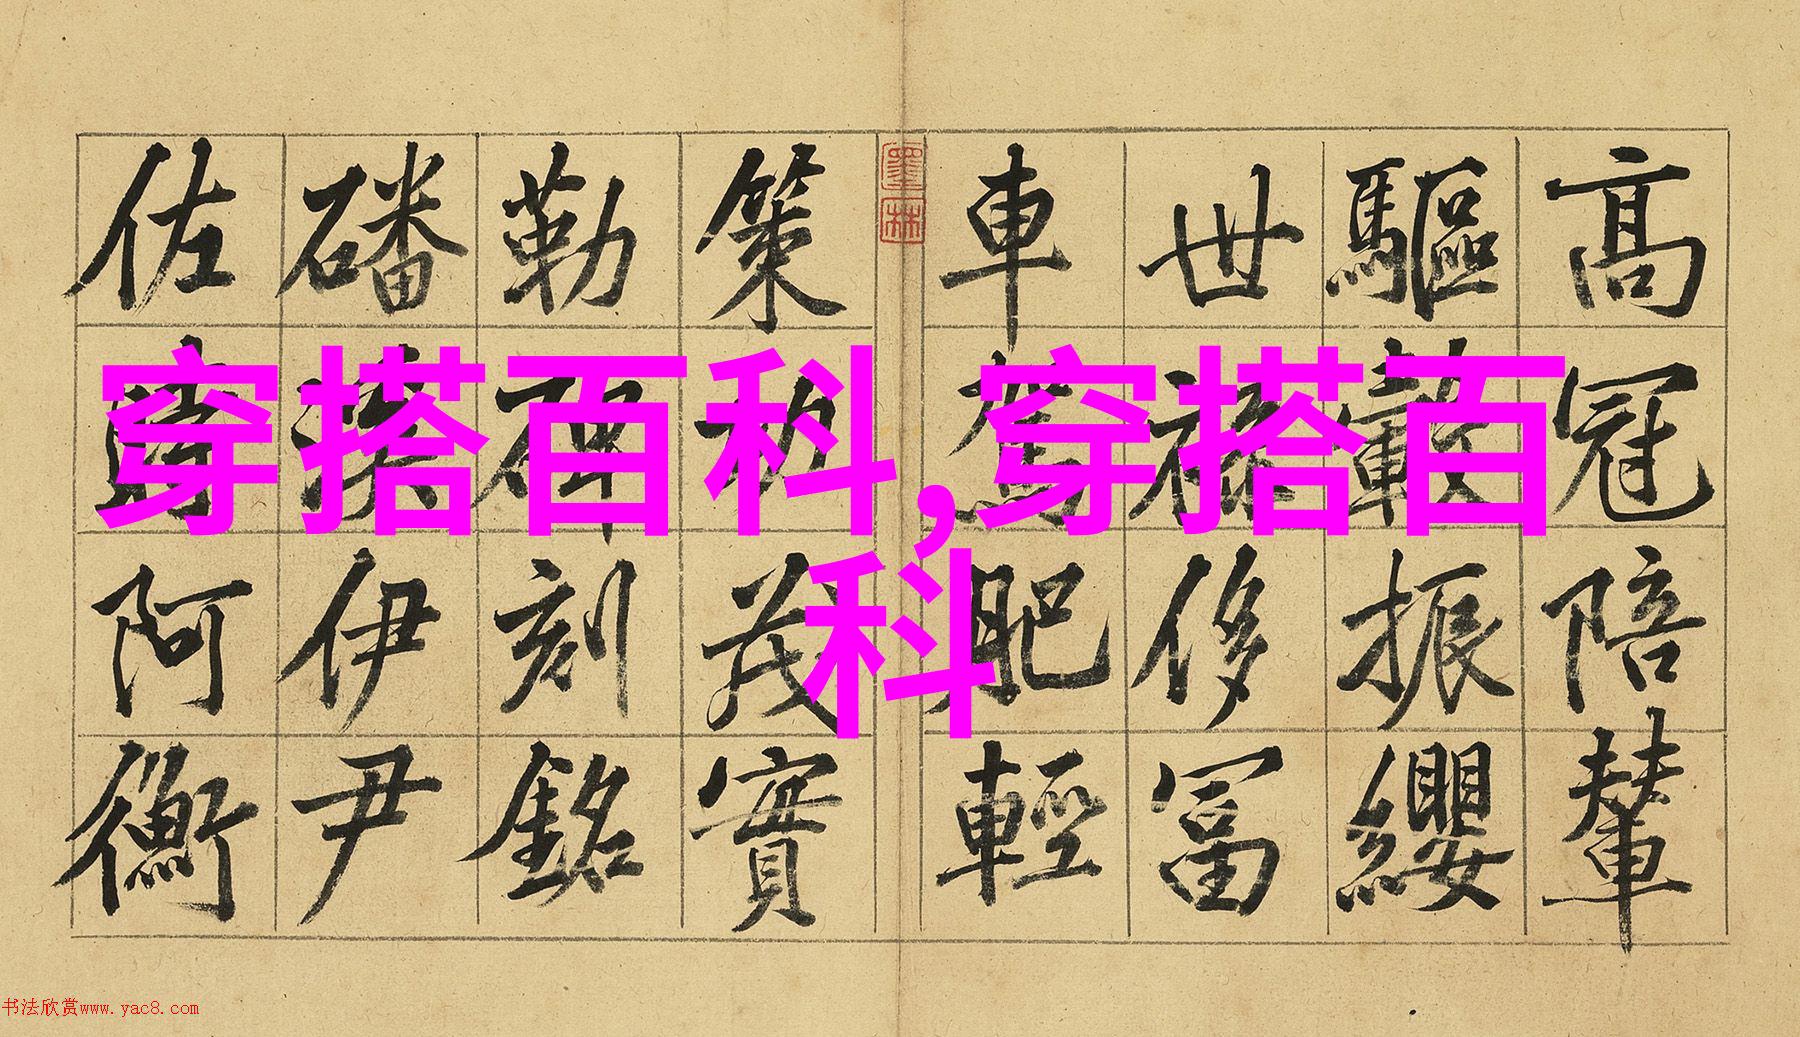 高冠陪輦
驅轂振纓
世祿侈富
車駕肥輕
墨林
策功茂實
勒碑刻銘
磻溪伊尹
佐時阿衡
穿搭百科,穿搭百
科
书法欣赏www.yac8.com